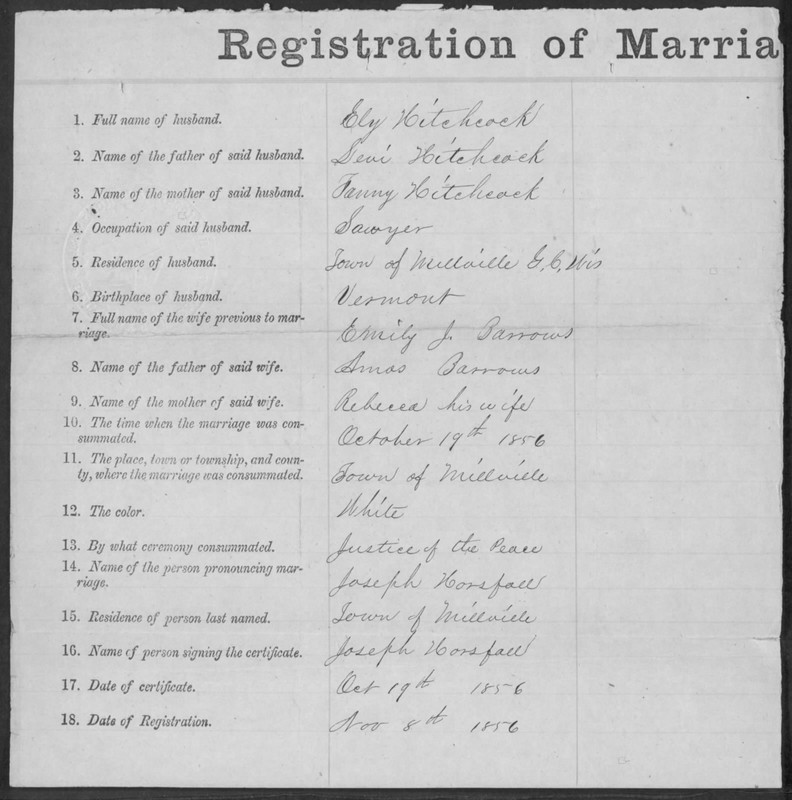 Registration of Marria
1. Full name of husband. Ely Hitchcock
2. Name of the father of said husband. Levi Hitchcock
3. Name of the mother of said husband. Fanny Hitchcock
4. Occupation of said husband. Sawyer
5. Residence of husband. Town of Millville G, C, Wis
6. Birthplace of husband. Vermont
7. Full name of the wife previous to mar-
riage. Emily J. Barrows
8. Name of the father of said wife. Amos Barrows
9. Name of the mother of said wife. Rebecca his wife
10. The time when the marriage was con-
summated. October 19th 1856
11. The place, town or township, and coun-
ty, where the marriage was consummated. Town of Millville
12. The color. White
13. By what ceremony consummated. Justice of the Peace
14. Name of the person pronouncing mar-
riage. Joseph Horsfall
15. Residence of person last named. Town of Millville
16. Name of person signing the certificate. Joseph Horsfall
17. Date of certificate. Oct 19th 1856
18. Date of Registration. Nov 8th 1856